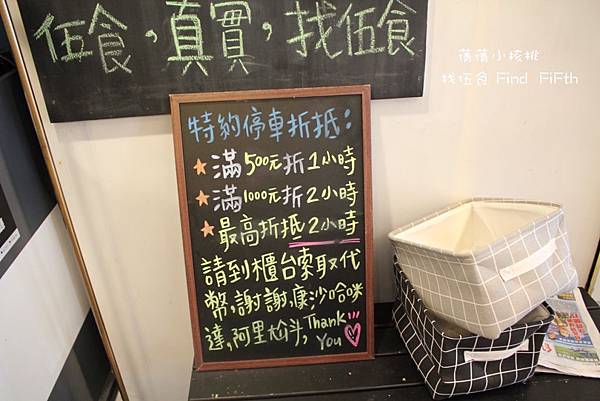 伍食,真實,找伍食
蒨蒨小核桃
找伍食 Find FiFth
特約停車折抵:
★滿500元折1小時
★滿1000元折2小時
★最高折抵2小時
請到櫃台索取代
幣,謝謝,康沙哈咪
達,阿里尬斗,Thank
You